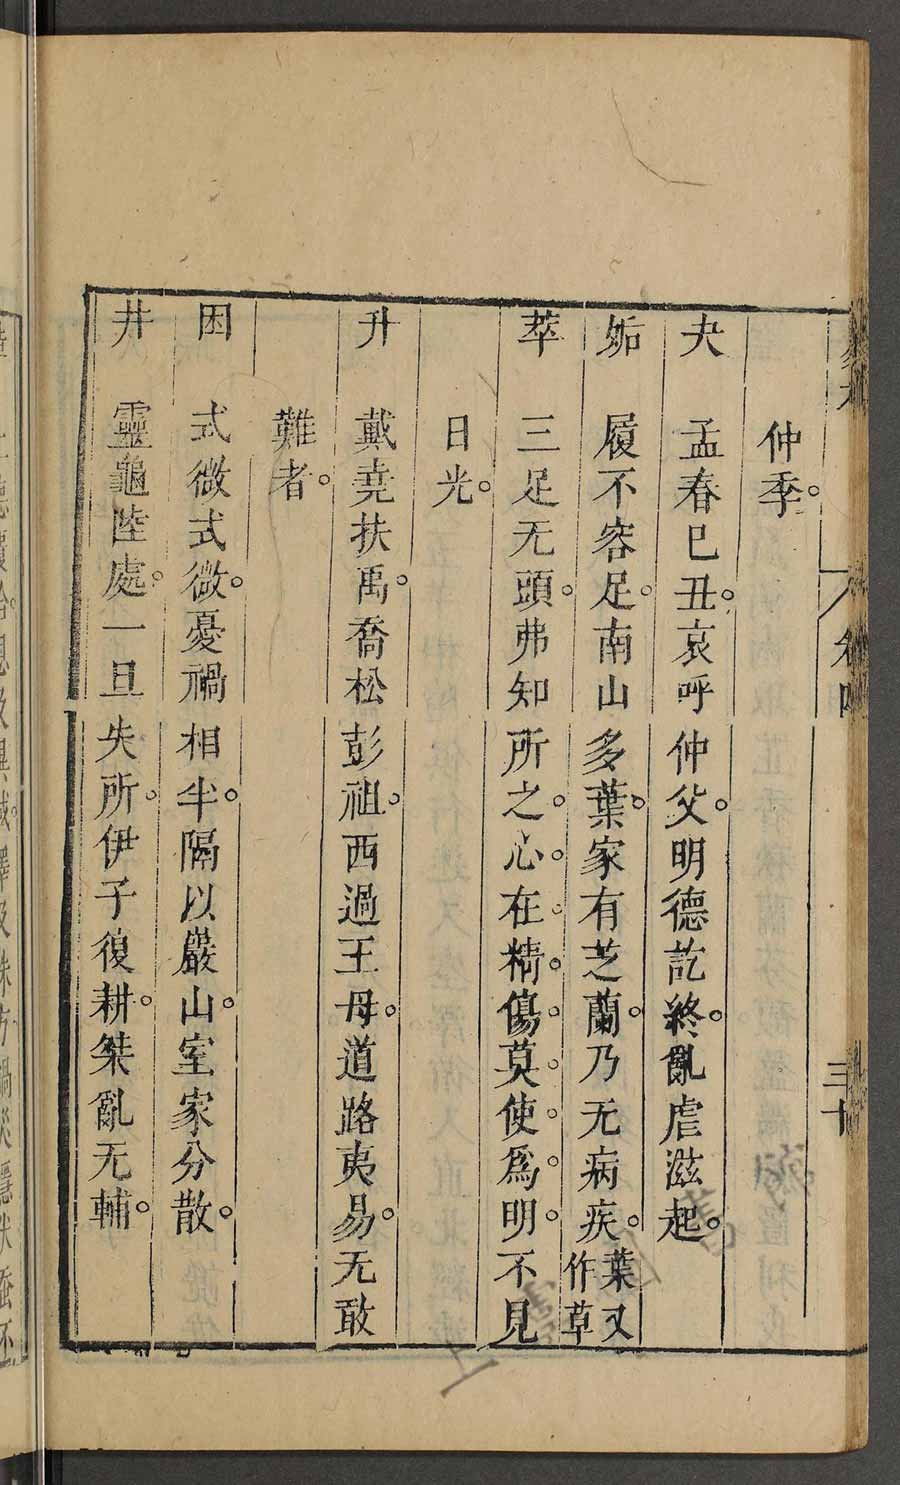 仲季。
夬 孟春己丑。哀呼仲父。明德訖終。亂虐滋起。
姤 履不容足。南山多葉。家有芝蘭。乃无病疾。葉又作草
萃 三足无頭。弗知所之。心。在。精。傷。莫。使。為。明。不見
日光。
升 戴堯扶禹。喬松彭祖。西過王母。道路夷易。无敢
難者。
困 式微式微。憂禍相半。隔以巖山。室家分散。
井 靈龜陸處。一旦失所。伊子復耕。桀亂无輔。
卷四
三十